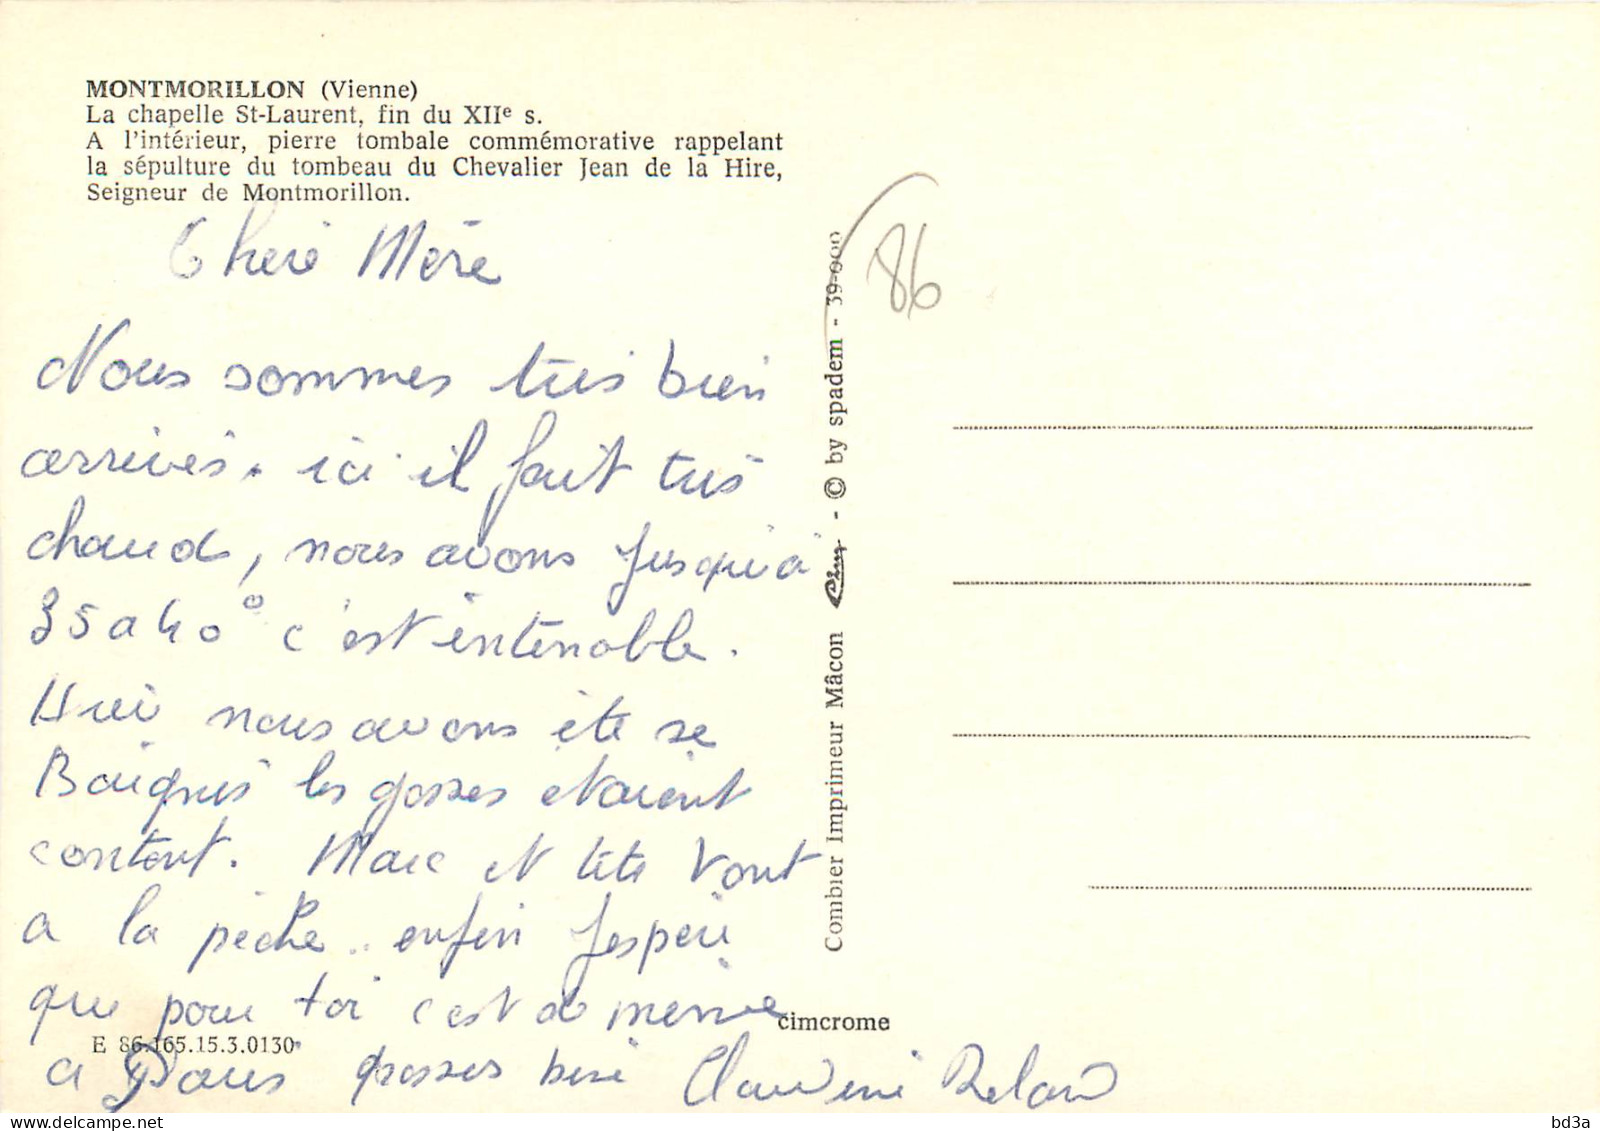 MONTMORILLON (Vienne)
La chapelle St-Laurent, fin du XIIe s.
A l'intérieur, pierre tombale commémorative rappelant
la sépulture du tombeau du Chevalier Jean de la Hire,
Seigneur de Montmorillon.
Chere Mère
Nous sommes très bien
arrivés. ici il fait très
chaud, nous avons jusqu'à
35 a 40° c'est intenable.
Hier nous avons été se
Baignés les gosses etaient
content. Marc et tete vont
a la pêche.. enfin j'espère
que pour toi c'est de meme
a Paris grosses bise Claudine Roland
E 86-165.15.3.0130
cimcrome
Combier Imprimeur Mâcon Cim - © by spadem - 39-000
86
bidfun-shop.com
bd3a